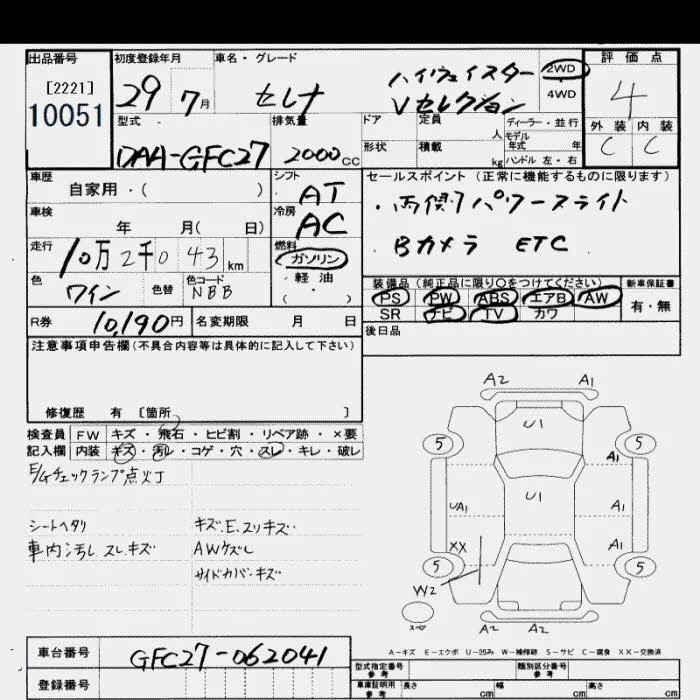 出品番号 初度登録年月 車名・グレード 評価点
[2221]
10051
29 7月 セレナ ハイウェイスター Vセレクション 2WD 4WD 4
型式 排気量 ドア 定員 人 ディーラー・並行 外装 内装
DAA-GFC27 2000cc 形状 積載 kg モデル年式 年 ハンドル 左・右 C C
車歴 シフト セールスポイント(正常に機能するものに限ります)
自家用・( ) AT ・両側パワースライト
車検 冷房
年 月( 日) AC ・Bカメラ ETC
走行 燃料
10万2千043km ガソリン
色 色替 色コード 軽油 装備品(純正品に限り○をつけてください) 新車保証書
ワイン NBB ( ・ ) PS PW ABS エアB AW 有・無
R券 10,190円 名変期限 月 日 SR ナビ TV カワ
注意事項申告欄(不具合内容等は具体的に記入して下さい) 後日品
修復歴 有 [箇所 ]
検査員 FW キズ・飛石・ヒビ割・リペア跡・×要
記入欄 内装 キズ・汚レ・コゲ・穴・スレ・キレ・破レ
E/Gチェックランプ点灯
シートヘタリ キズ.E.スリキズ
車内汚レ スレ.キズ AWケズレ
サイドカバーキズ
A2 A1
U1
5 5
A1
U1
UA1 A1
XX A1
5 5
W2
スペア A2 A2
A-キズ E-エクボ U-凹み W-補修跡 S-サビ C-腐食 XX-交換済
車台番号 GFC27-062041 型式指定番号 参考 類別区分番号 参考
登録番号 車庫証明用 参考 長さ cm 幅 cm 高さ cm